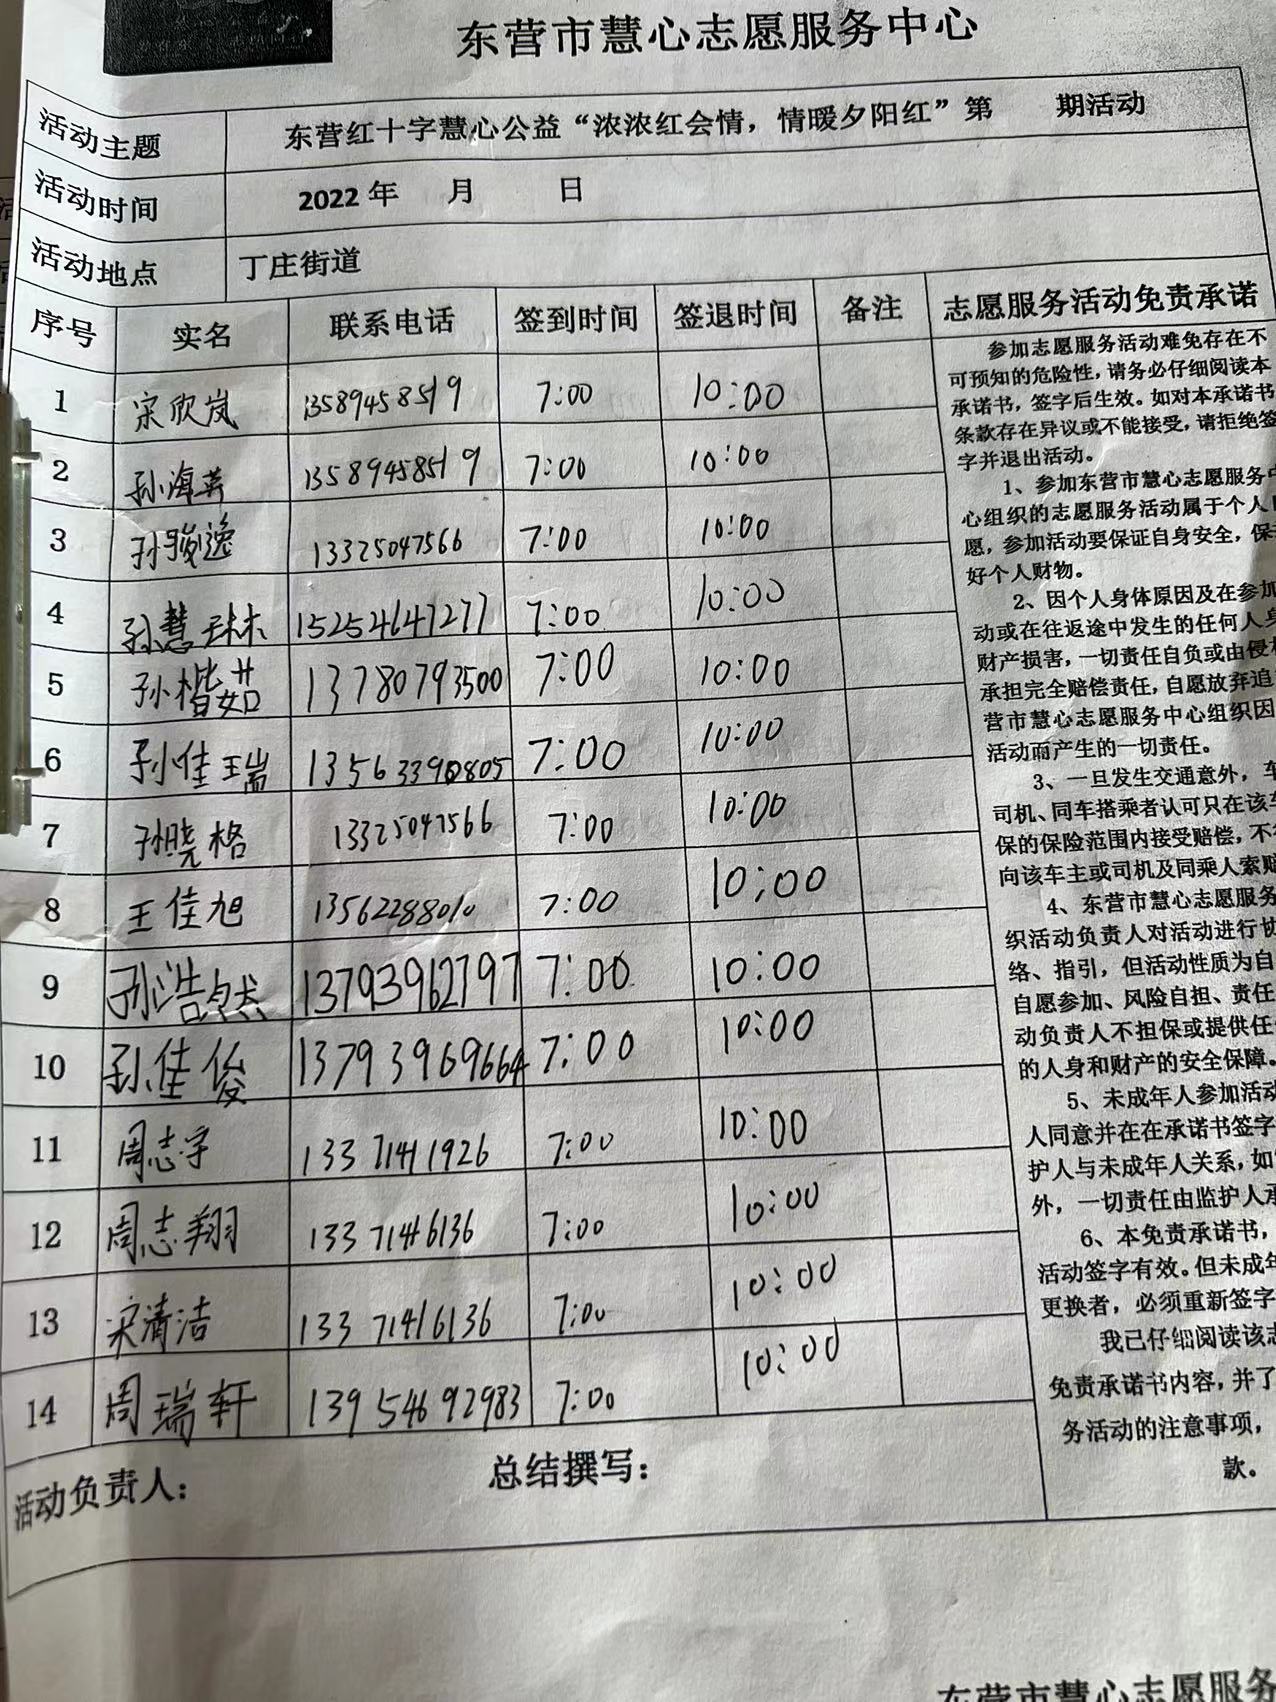 东营市慧心志愿服务中心
活动主题 东营红十字慧心公益“浓浓红会情，情暖夕阳红”第 期活动
活动时间 2022年 月 日
活动地点 丁庄街道
序号 实名 联系电话 签到时间 签退时间 备注
1 宋欣岚 13589458519 7:00 10:00
2 孙海英 13589458519 7:00 10:00
3 孙骏逸 13325047566 7:00 10:00
4 孙慧琳 15254647277 7:00 10:00
5 孙楷茹 13780793500 7:00 10:00
6 孙佳瑞 7:00 10:00
7 孙晓格 13325047566 7:00 10:00
8 王佳旭 13562288010 7:00 10:00
9 孙浩然 13793962797 7:00 10:00
10 孙佳俊 13793969664 7:00 10:00
11 周志宇 13371411926 7:00 10:00
12 周志翔 13371416136 7:00 10:00
13 宋清洁 13371416136 7:00 10:00
14 周瑞轩 13954692983 7:00 10:00
活动负责人： 总结撰写：
志愿服务活动免责承诺
参加志愿服务活动难免存在不
可预知的危险性，请务必仔细阅读本
承诺书，签字后生效。如对本承诺书
条款存在异议或不能接受，请拒绝签
字并退出活动。
1、参加东营市慧心志愿服务中
心组织的志愿服务活动属于个人
愿，参加活动要保证自身安全，保
好个人财物。
2、因个人身体原因及在参加
动或在往返途中发生的任何人身
财产损害，一切责任自负或由侵权
承担完全赔偿责任，自愿放弃追
营市慧心志愿服务中心组织因
活动而产生的一切责任。
3、一旦发生交通意外，车
司机、同车搭乘者认可只在该车
保的保险范围内接受赔偿，不
向该车主或司机及同乘人索赔
4、东营市慧心志愿服务
织活动负责人对活动进行协
络、指引，但活动性质为自
自愿参加、风险自担、责任
动负责人不担保或提供任
的人身和财产的安全保障。
5、未成年人参加活动
人同意并在在承诺书签字
护人与未成年人关系，如
外，一切责任由监护人承
6、本免责承诺书，
活动签字有效。但未成年
更换者，必须重新签字
我已仔细阅读该志
免责承诺书内容，并了
务活动的注意事项，
款。
东营市慧心志愿服务